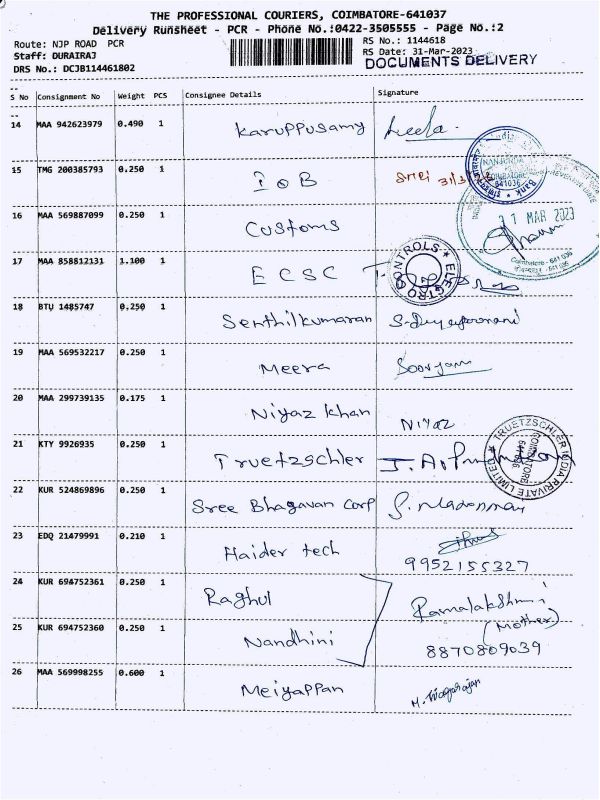 THE PROFESSIONAL COURIERS, COIMBATORE-641037
Delivery Runsheet - PCR - Phone No.:0422-3505555 - Page No.:2
Route: NJP ROAD PCR RS No.: 1144618
Staff: DURAIRAJ RS Date: 31-Mar-2023
DRS No.: DCJB114461802 DOCUMENTS DELIVERY
S No Consignment No Weight PCS Consignee Details Signature
14 MAA 942623979 0.490 1 Karuppusamy Leela
15 TMG 200385793 0.250 1 I o B
16 MAA 569887099 0.250 1 Customs
31 MAR 2023
17 MAA 858812131 1.100 1 ECSC
CONTROLS ★ ELECTRO
18 BTU 1485747 0.250 1 Senthilkumaran
19 MAA 569532217 0.250 1 Meera
20 MAA 299739135 0.175 1 Niyaz khan Niyaz
21 KTY 9926935 0.250 1 Truetzschler
TRUETZSCHLER INDIA PRIVATE LIMITED
COIMBATORE
641036
22 KUR 524869896 0.250 1 Sree Bhagavan Corp
23 EDQ 21479991 0.210 1 Haider tech
9952155327
24 KUR 694752361 0.250 1 Raghul Ramalakshmi
(Mother)
25 KUR 694752360 0.250 1 Nandhini 8870809039
26 MAA 569998255 0.600 1 Meiyappan